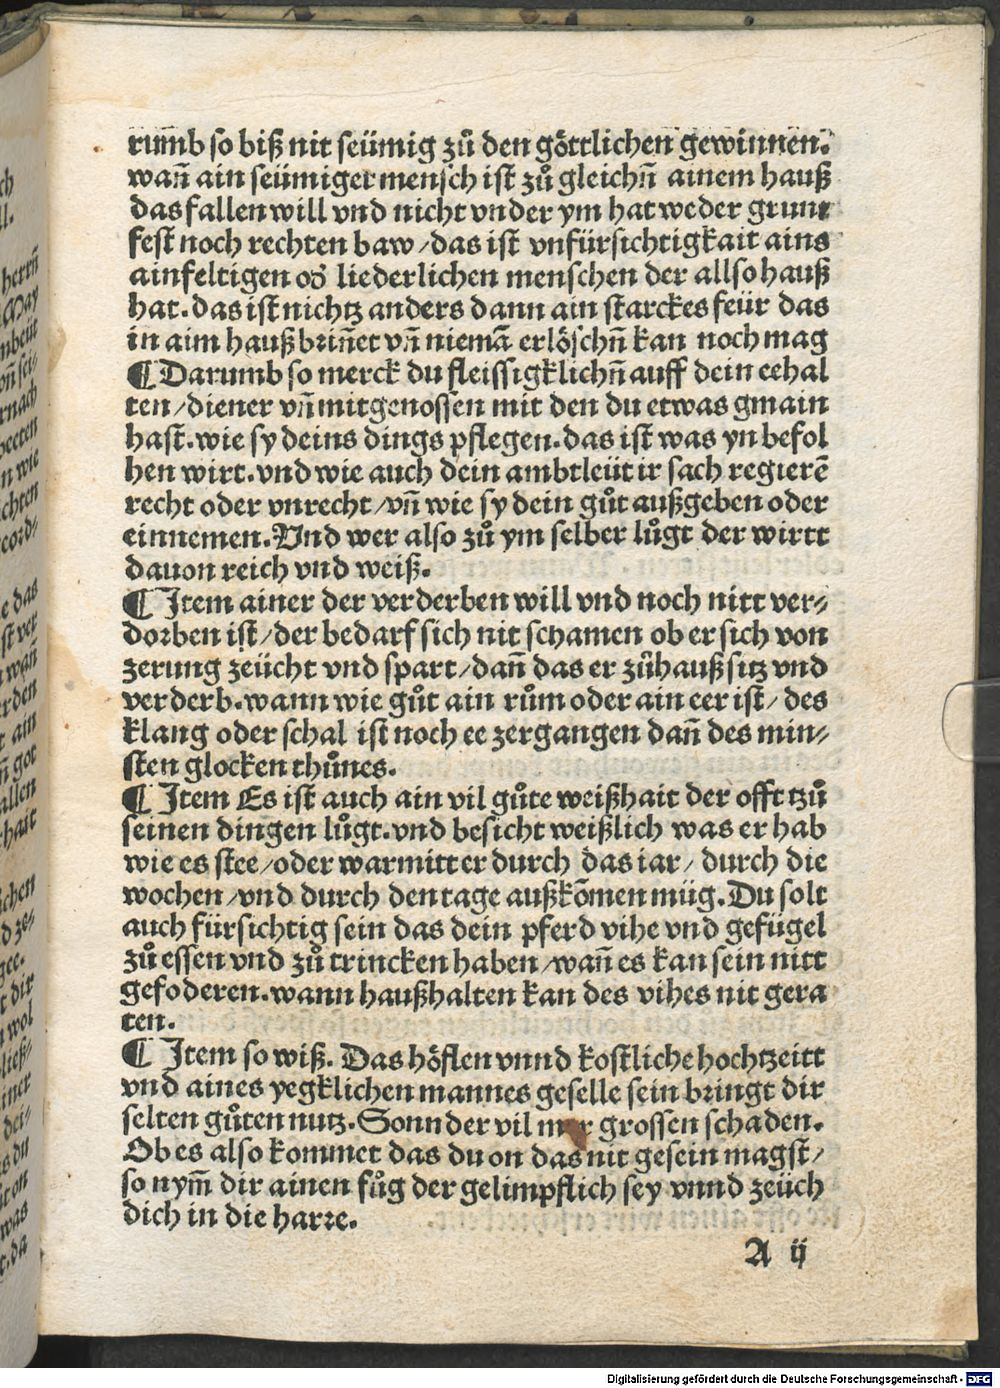 rumb so biß nit seümig zů den göttlichen gewinnen.
wañ ain seümiger mensch ist zů gleichñ ainem hauß
das fallen will vnd nicht vnder ym hat weder grunt
fest noch rechten baw/das ist vnfürsichtigkait ains
ainfeltigen oď liederlichen menschen der allso hauß
hat.das ist nichtz anders dann ain starckes feür das
in aim hauß briñet vñ niemã erlöschñ kan noch mag
¶ Darumb so merck du fleissigklichñ auff dein eehal
ten/diener vñ mitgenossen mit den du etwas gmain
hast.wie sy deins dings pflegen.das ist was yn befol
hen wirt.vnd wie auch dein ambtleüt ir sach regierẽ
recht oder vnrecht/vñ wie sy dein gůt außgeben oder
einnemen.Vnd wer also zů ym selber lůgt der wirtt
dauon reich vnd weiß.
¶ Item ainer der verderben will vnd noch nitt ver⸗
dorben ist/der bedarf sich nit schamen ob er sich von
zerung zeücht vnd spart/dañ das er zůhauß sitz vnd
verderb.wann wie gůt ain rům oder ain eer ist/des
klang oder schal ist noch ee zergangen dañ des min⸗
sten glocken thůnes.
¶ Item Es ist auch ain vil gůte weißhait der offt tzů
seinen dingen lůgt.vnd besicht weißlich was er hab
wie es stee/oder warmitt er durch das iar/durch die
wochen/vnd durch den tage außkõmen müg.Du solt
auch fürsichtig sein das dein pferd vihe vnd gefügel
zů essen vnd zů trincken haben/wañ es kan sein nitt
gefoderen.wann haußhalten kan des vihes nit gera
ten.
¶ Item so wiß. Das höflen vnnd kostliche hochtzeitt
vnd aines yegklichen mannes geselle sein bringt dir
selten gůten nutz.Sonnder vil mer grossen schaden.
Ob es also kommet das du on das nit gesein magst/
so nym̃ dir ainen fůg der gelimpflich sey vnnd zeüch
dich in die harre.
A ij
Digitalisierung gefördert durch die Deutsche Forschungsgemeinschaft - DFG